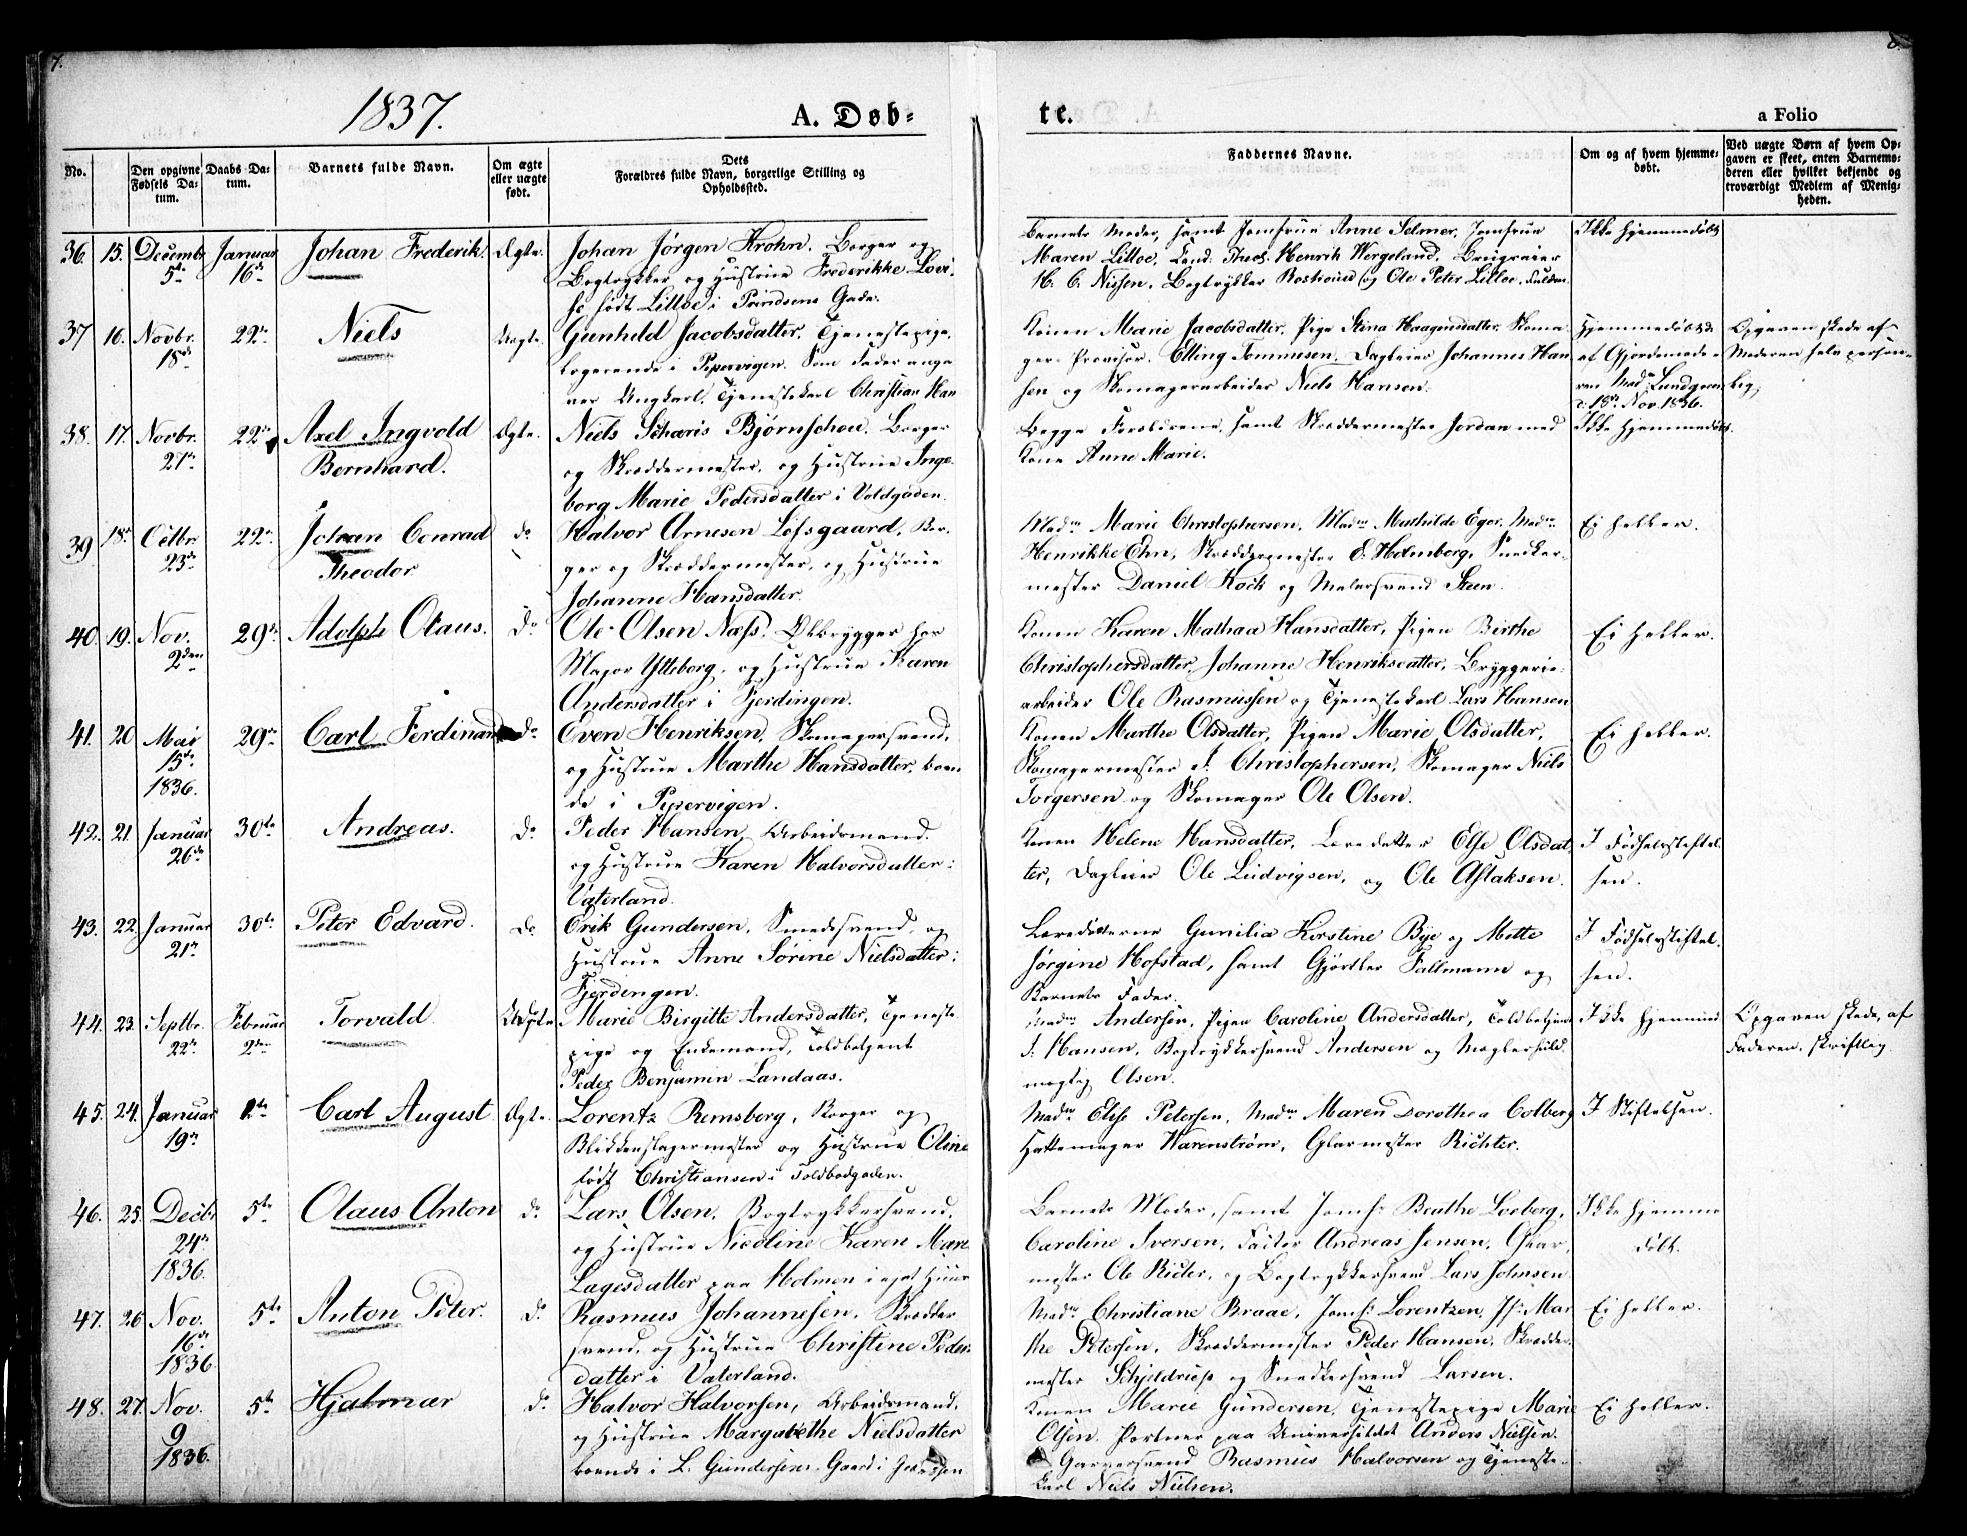 7.
8.
1837.
A. Døb=
te.
a Folio
No.
Den opgivne Fødsels Datum.
Daabs Datum.
Barnets fulde Navn.
Om ægte eller uægte født.
Dets Forældres fulde Navn, borgerlige Stilling og Opholdssted.
Faddernes Navne.
Om og af hvem hjemmedøbt.
Ved uægte Børn af hvem Opgaven er skeet, enten Barnemoderen eller hvilket bekjendt og troværdigt Medlem af Menigheden.
36. 15. Decembr 5te Januar 16de Johan Frederik. Ægte.
Johan Jørgen Krohn. Borger og
Bogtrykker og Hustrue Frederikke Lovi-
se født Lilloe i Prindsens Gade.
Barnets Moder, samt Jomfrue Anne Selmer, Jomfrue
Maren Lilloe, Cand. Theol. Henrik Wergeland, Brugseier
H. C. Nissen, Bogtrykker Roshoued og Ole Peter Lilloe.
Ikke hjemmedøbt
37 16. Novbr. 18de 22de Niels Uægte.
Gunhild Jacobsdatter, Tjenestepige,
logerende i Pipervigen. Som Fader anga-
ves Ungkarl, Tjenestekarl Christian Han
Konen Marie Jacobsdatter, Pige Stina Haagensdatter, Skoma-
ger Provisor Elling Tommesen, Dagleier Johannes Han
sen og Skomagerarbeider Niels Hansen.
Hjemmedøbt
af Gjordemode-
ren Mad. Lundgreen
d. 18de Nov. 1836.
Opgaven skede af
Moderen selv person-
lig.
38. 17. Novbr. 27de 22de Axel Ingvold
Bernhard. Ægte.
Niels Scharis Bjørnschou. Borger
og Skræddermester, og Hustrue Inge-
borg Marie Pedersdatter i Voldgaden.
Begge Forældrene, samt Skræddermester Jordan med
Kone Anne Marie.
Ikke hjemmedøbt.
39 18de Octbr. 23de 22de Johan Conrad
Theodor do
Halvor Arnesen Løfsgaard, Bor-
ger og Skræddermester, og Hustrue
Johanne Hansdatter.
Madm Marie Christophersen, Madm Mathilde Eger, Madm
Henrikke Ehn, Skræddermester E. Holmborg, Snedker-
mester Daniel Kock og Malersvend Steen.
Ei heller.
40. 19. Nov. 2den 29de Adolph Olaus. do
Ole Olsen Næss. Ølbrygger hos
Major Ytteborg, og Hustrue Karen
Andersdatter i Fjerdingen.
Konen Karen Mathea Hansdatter, Pigen Birthe
Christophersdatter, Johanne Henriksdatter, Bryggerie-
arbeider Ole Rasmussen og Tjenestekarl Lars Hansen
Ei heller.
41. 20 Mai 15de 1836. 29de Carl Ferdinand do
Even Henriksen, Skomagersvend,
og Hustrue Marthe Hansdatter, boen
de i Pipervigen.
Konen Marthe Olsdatter, Pigen Marie Olsdatter,
Skomagermester J. Christophersen, Skomager Niels
Torgersen og Skomager Ole Olsen.
Ei heller.
42. 21. Januar 26de 30te Andreas. do
Peder Hansen, Arbeidsmand
og Hustrue Karen Halvorsdatter i
Vaterland.
Konen Helene Hansdatter, Læredatter Else Olsdat-
ter, Dagleier Ole Ludvigsen, og Ole Aslaksen.
I Fødselsstiftel
sen.
43. 22. Januar 21de 30te Peter Edvard. do
Erik Gundersen, Smedsvend, og
Hustrue Anne Sørine Nielsdatter i
Fjerdingen.
Læredøtrene Gunilia Kirstine Bye og Mette
Jørgine Hofstad, samt Gjørtler Fallmann og
Barnets Fader.
I Fødselsstiftel.
sen.
44. 23. Septbr. 22de Februar 2den Torvald. Uægte.
Marie Birgitte Andersdatter, Tjeneste
pige og Enkemand, Toldbetjent
Peder Benjamin Landaas.
Madm Andersen, Pigen Caroline Andersdatter, Toldbetjent
J. Hansen, Bogtrykkersvend Andersen og Møglerfuld-
mægtig Olsen.
Ikke hjemmed
Opgaven skede, af
Faderen, skriftlig
45. 24. Januar 19de 1te Carl August. Ægte.
Lorentz Remsberg, Borger og
Blikkenslagermester og Hustrue Oline
født Christiansen i Toldbodgaden.
Madm Else Petersen, Madm Maren Dorothea Colberg
Hattemager Warenstrøm, Glarmester Richter.
I Stiftelsen.
46. 25. Decbr 24de 1836. 5te Olaus Anton do
Lars Olsen, Bogtrykkersvend,
og Hustrue Nicoline Karen Marie
Lagesdatter paa Holmen i eget Huus
Barnets Moder, samt Jomf. Beathe Loeberg,
Caroline Iversen, Factor Andreas Jensen, Glar-
mester Ole Ricter, og Bogtrykkersvend Lars Johnsen
Ikke hjemme
døbt.
47. 26 Nov. 16de 1836 5te Anton Peter. do
Rasmus Johannesen, Skrædder
svend, og Hustrue Christine Peders
datter i Vaterland.
Madm Christiane Braae, Jomf. Lorentzen, Jf. Mar
the Petersen, Skræddermester Peder Hansen, Skrædder-
mester Schjeldrup og Snedkersvend Larsen.
Ei heller.
48. 27. Nov. 9 1836. 5te Hjalmar do
Halvor Halvorsen, Arbeidsmand,
og Hustrue Margarethe Nielsdatter
boende i L. Gundersens Gaard i
Konen Marie Gundersen, Tjenestepige Marie
Olsen, Portner paa Universitetet Anders Nielsen.
Garversvend Rasmus Halvorsen og Tjeneste-
karl Niels Nielsen.
Ei heller.